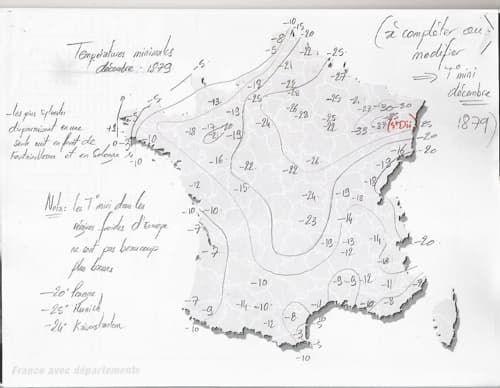 Températures minimales
décembre 1879
(à compléter ou
modifier
⇒ T° mini
décembre
1879)
-les plus
en une
seule nuit en forêt de
Fontainebleau et en Sologne
Nota: les T° mini dans les
régions froides d'Europe
ne sont pas beaucoup
plus basses
-20° Prague
-25° Munich
-26°
-10
-15
-8
-20
-5
-22
-25
-21
-27
-5
-18
-25
-28
-13
-25
-26
-28
-25
-27
-30
-30
-33
(St Dié)
-5
+1
0
-3
-10
-18
-17
-20
-24
-22
-26
-25
-20
-16
-20
-16
-22
-22
-19
-13
-12
-15
-24
-19
-18
-10
-10
-7
-23
-14
-14
-13
-13
-12
-18
-20
-10
-9
-9
-12
-11
-7
-9
-14
-10
-12
-8
-10
-8
-10
-5
-3
-10
France avec départements